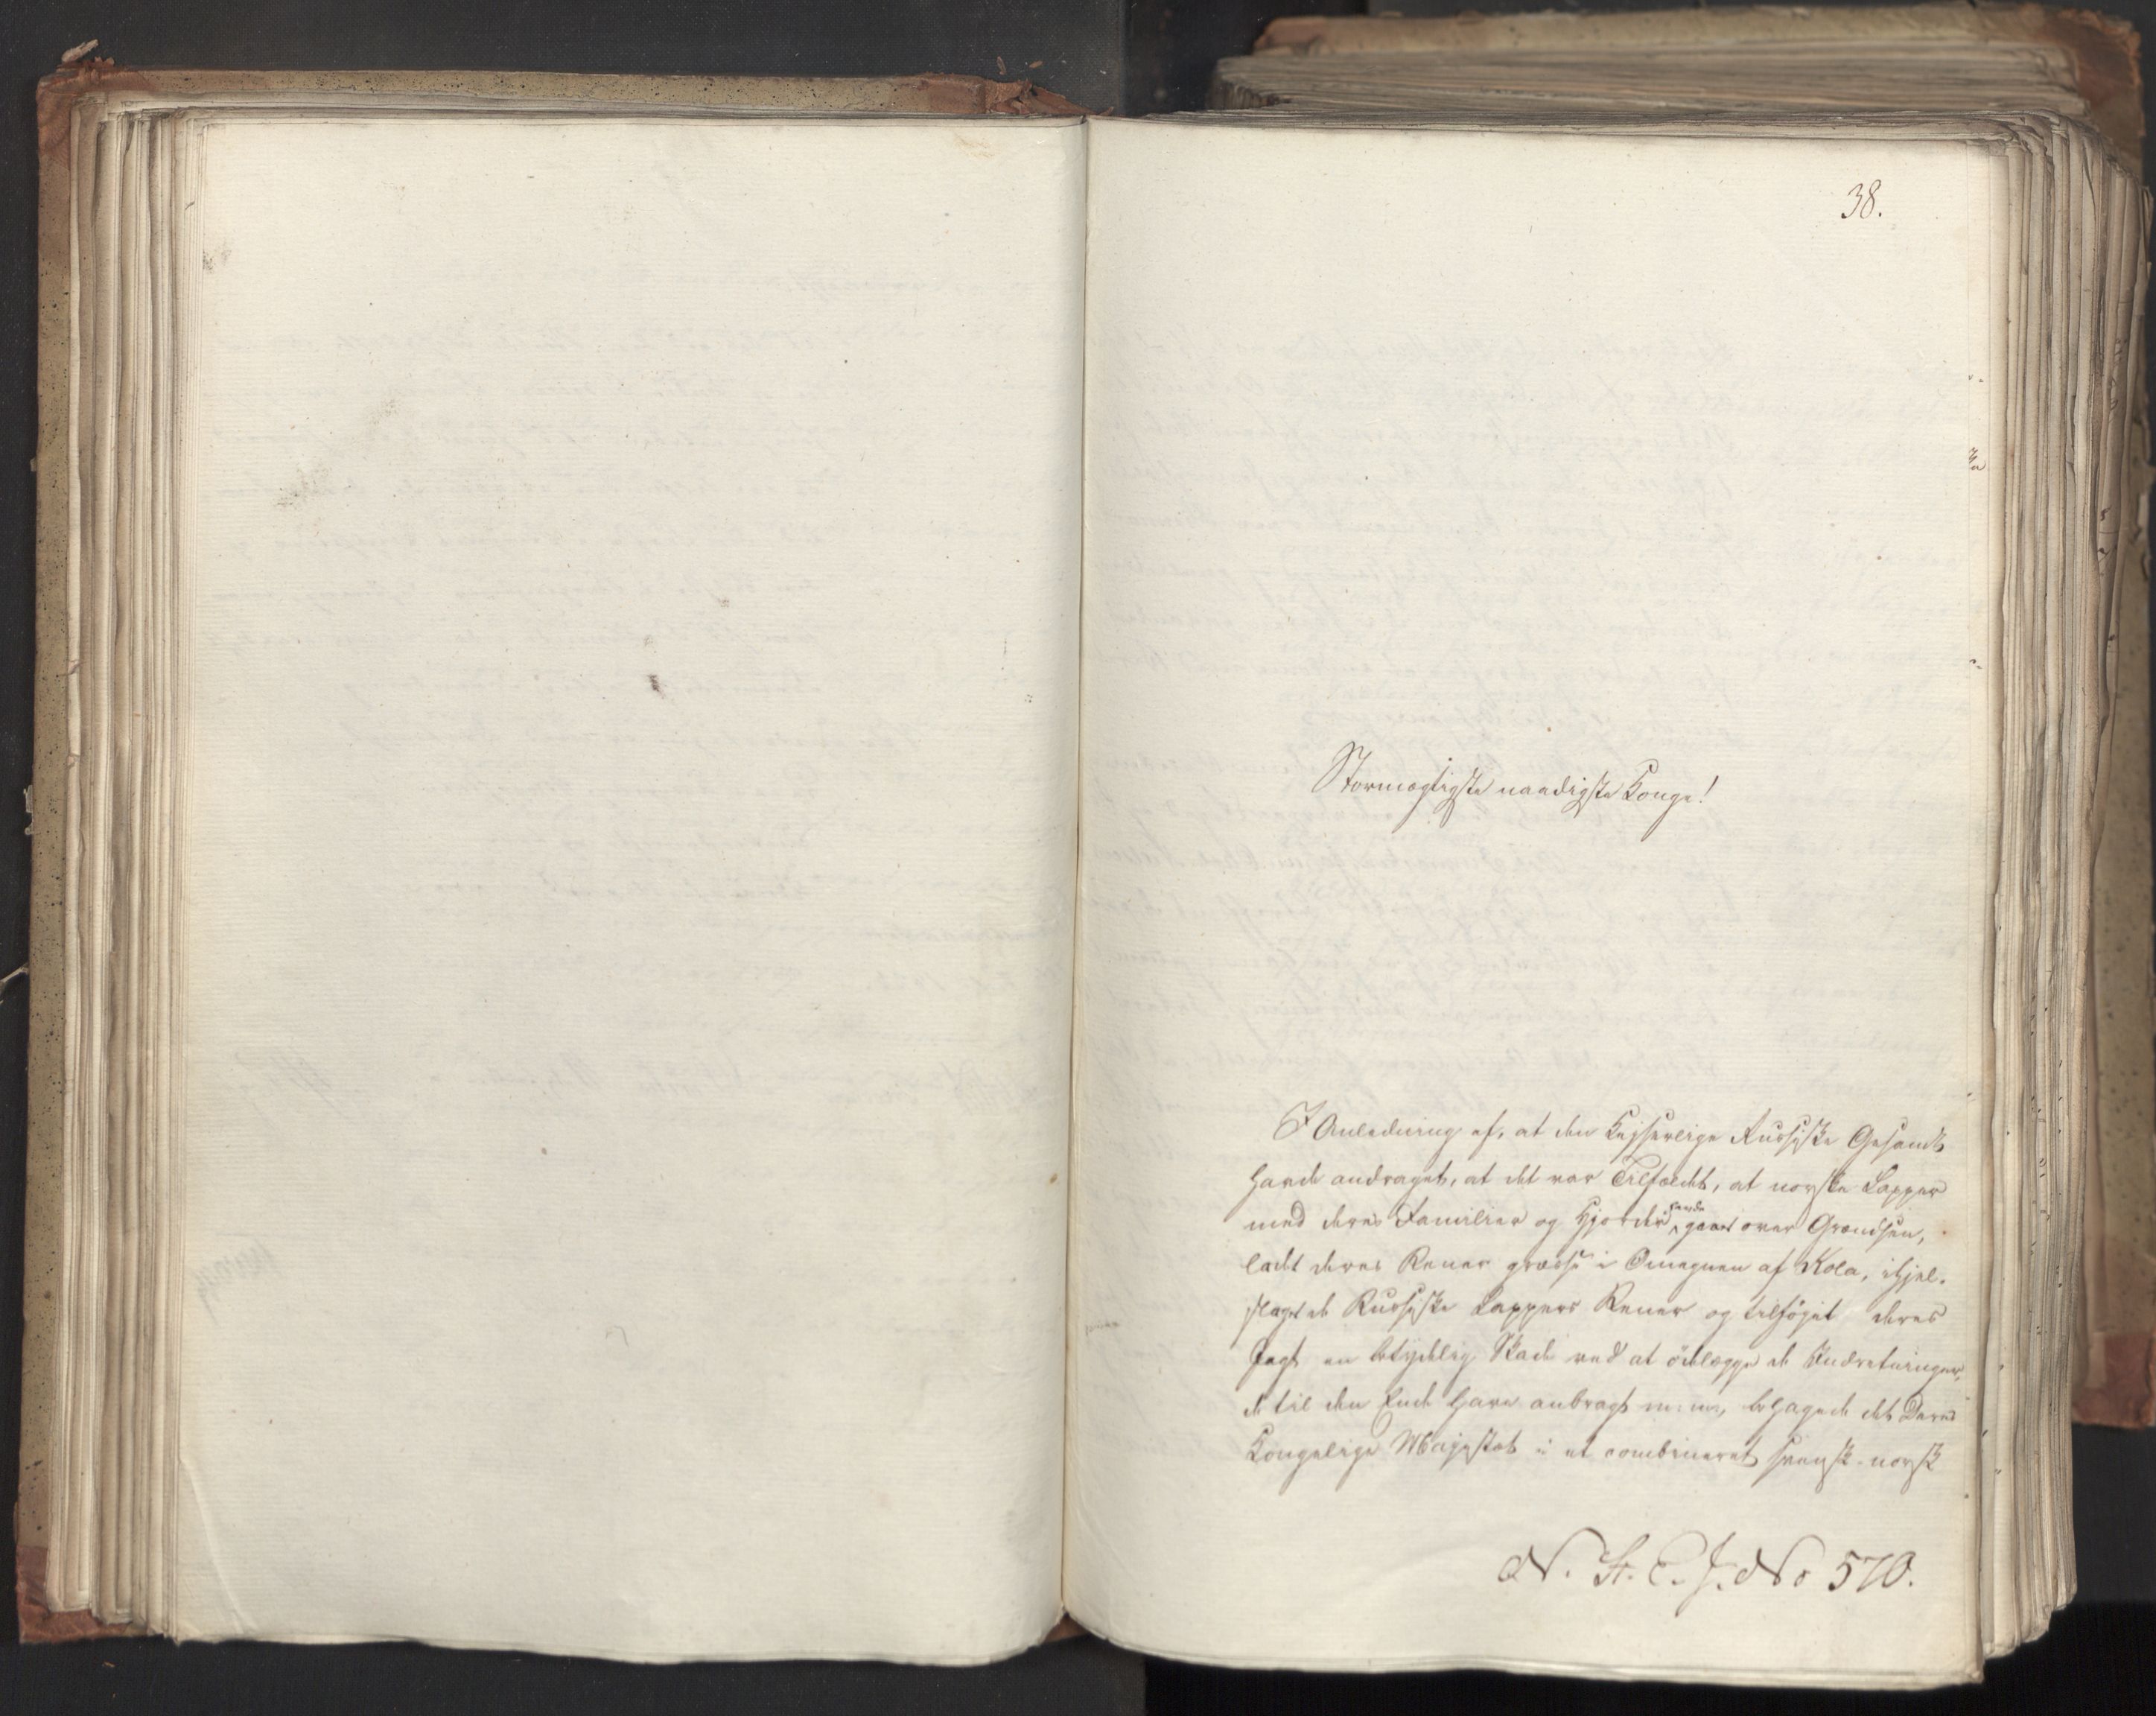 38.
Stormægtigste naadigste Konge!
I Anledning af, at den Kejserlige Russiske Gesandt
havde andraget, at det var Tilfældet, at norske Lapper
med deres Familier og Hjorder havde gaaet over Grændsen,
ladet deres Rener græsse i Omegnen af Kola, ihjel-
slaget de Russiske Lappers Rener og tilføjet deres
Jagt en betydelig Skade ved at ödelægge de Indretninger,
de til den Ende have anbragt m: m:, behagede det Deres
Kongelige Majestæt i et combineret svensk-norsk
N. St. E. J. No 570.